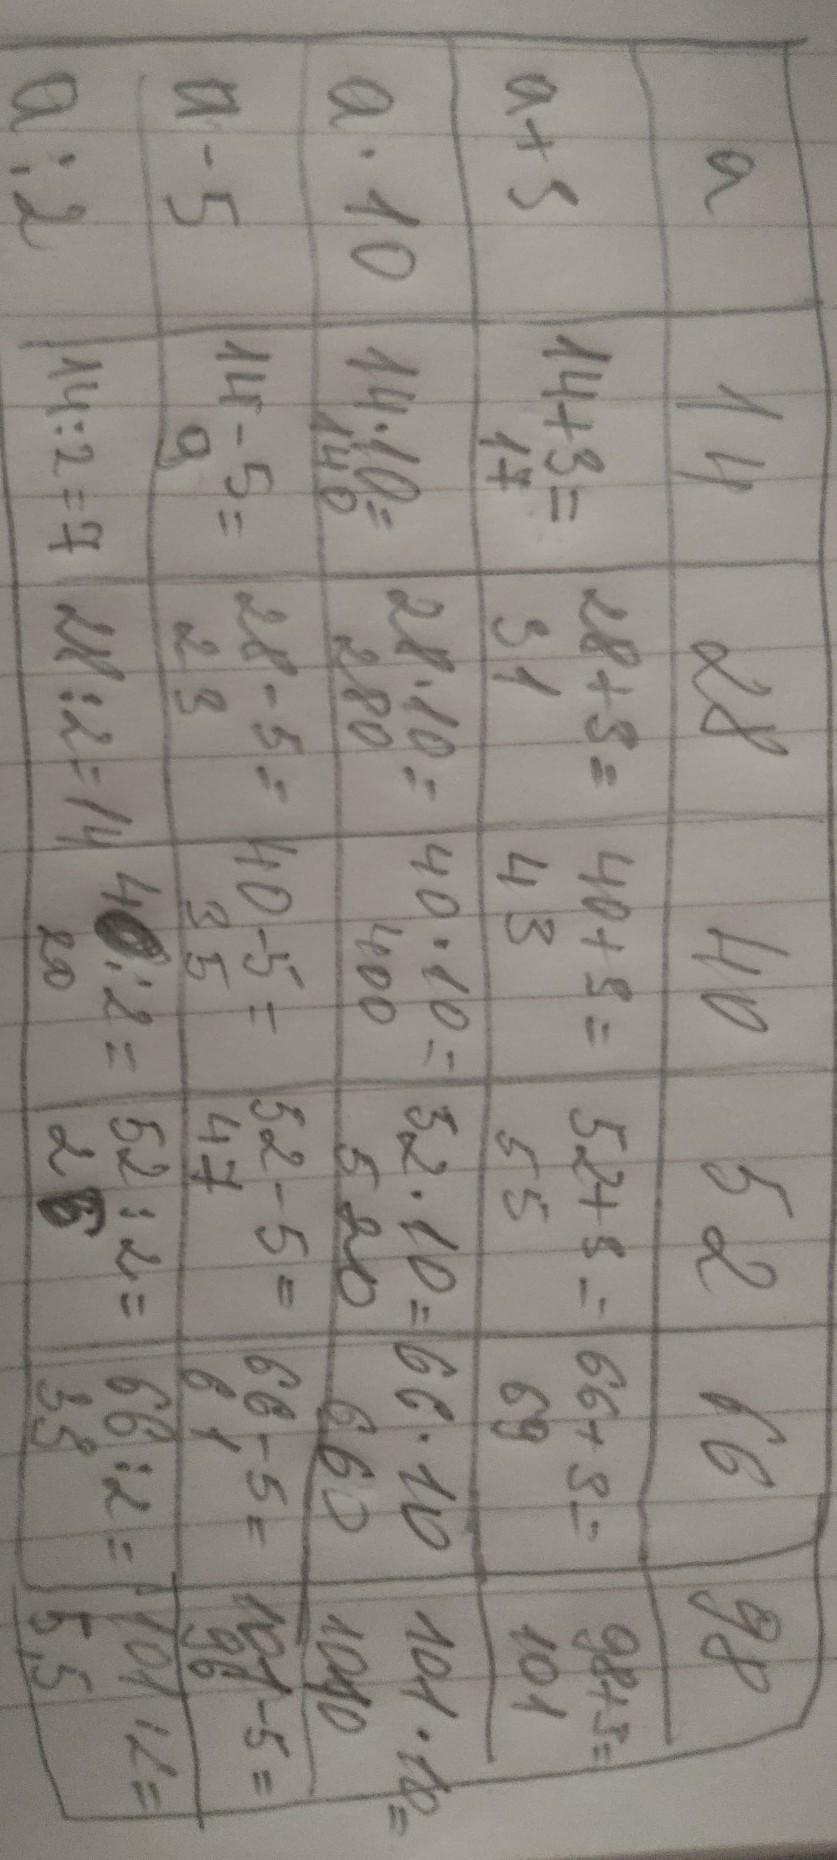 a 14 28 40 52 66 98
a+3 14+3= 28+3= 40+3= 52+3= 66+3= 98+3=
17 31 43 55 69 101
a·10 14·10= 28·10= 40·10= 52·10= 66·10 101·10=
140 280 400 520 660 1010
a-5 14-5= 28-5= 40-5= 52-5= 66-5= 101-5=
9 23 35 47 61 96
a:2 14:2=7 28:2=14 40:2= 52:2= 66:2= 101:2=
20 26 33 5,5